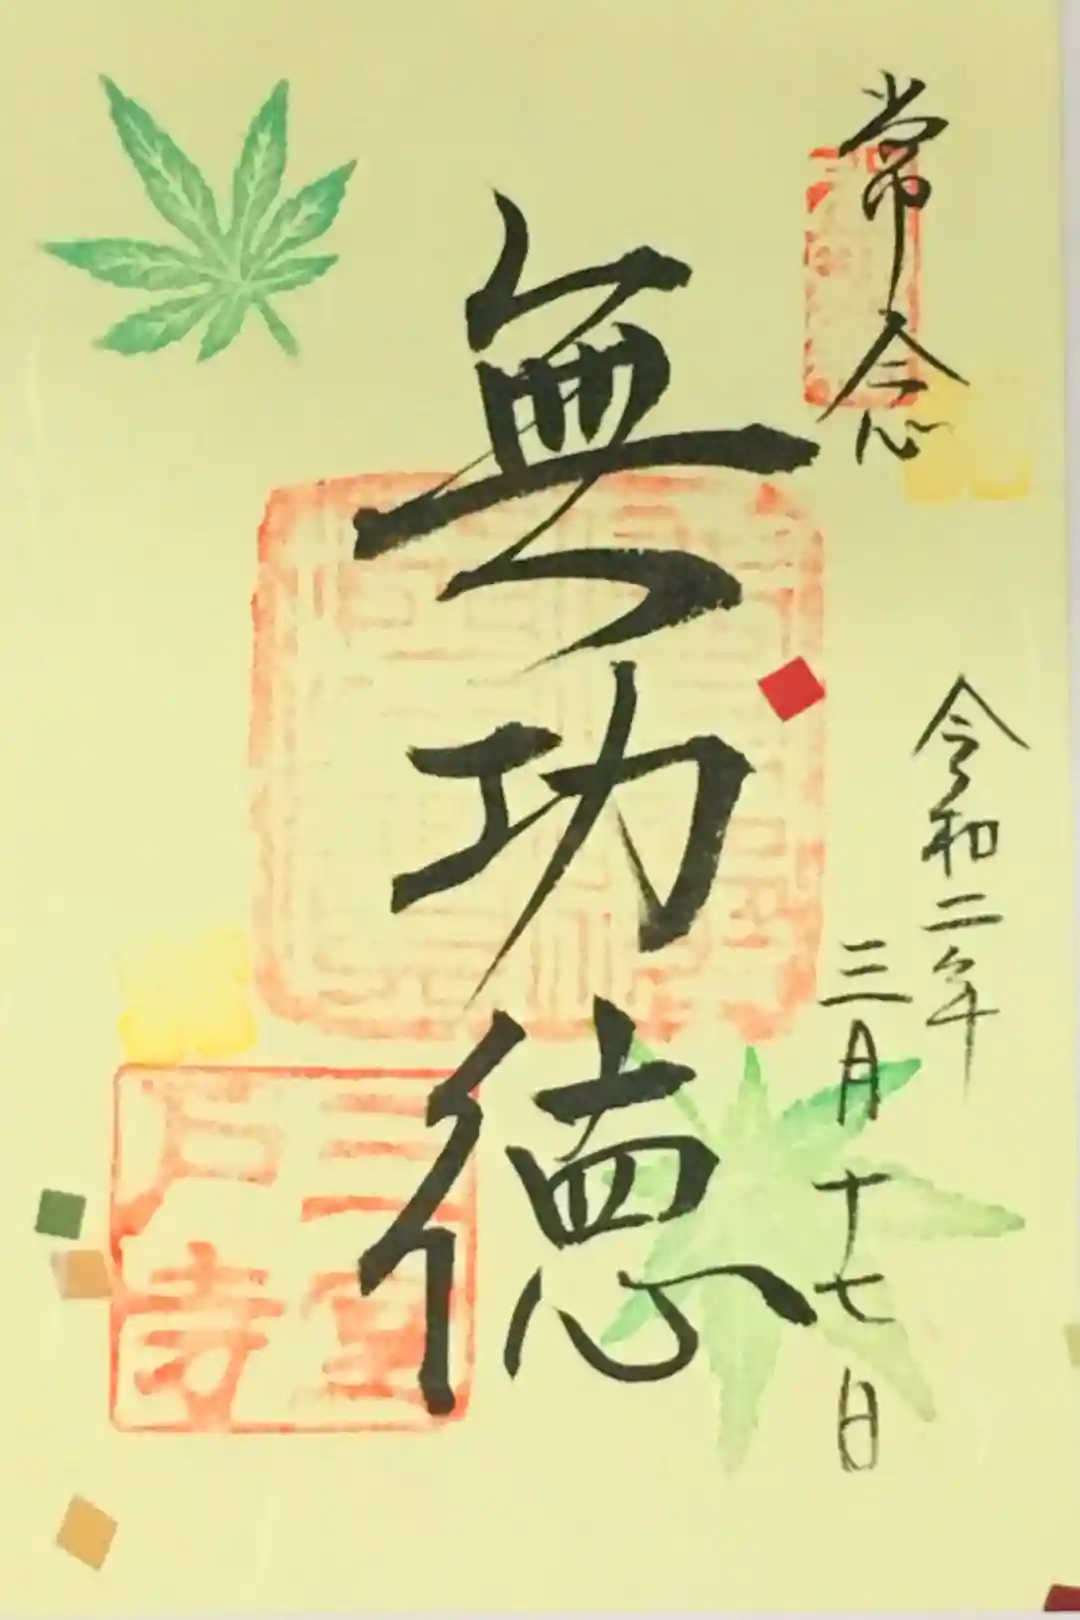 常念
令和二年
三月十七日
無功徳
三室
戸寺